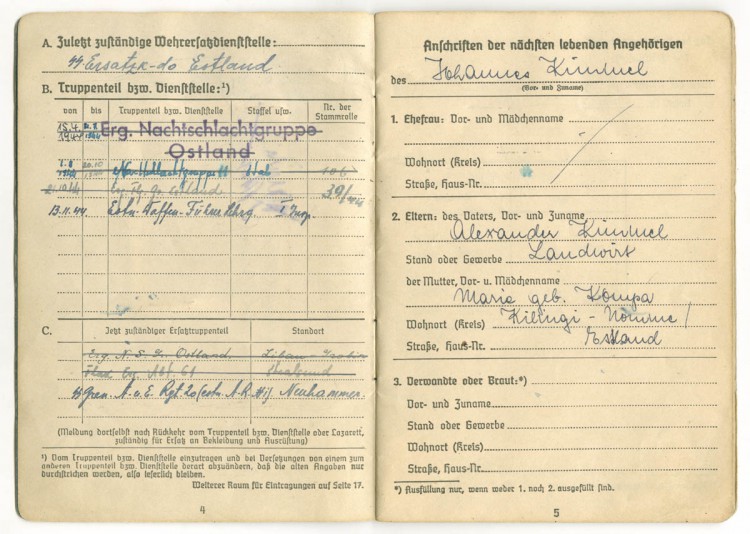 A. Zuletzt zuständige Wehrersatzdienststelle:
Ersatzk-do Estland.
B. Truppenteil bzw. Dienststelle:¹)
von bis Truppenteil bzw. Dienststelle Staffel usw. Nr. der Stammrolle
Erg. Nachtschlachtgruppe
Ostland
39/
13.11.44
C. Jetzt zuständiger Ersatztruppenteil Standort
Erg. N. S. Gr. Ostland.
Gren. A. u. E. Rgt. 20 (estn. Neuhammer.
(Meldung dortselbst nach Rückkehr vom Truppenteil bzw. Dienststelle oder Lazarett,
zuständig für Ersatz an Bekleidung und Ausrüstung)
¹) Vom Truppenteil bzw. Dienststelle einzutragen und bei Versetzungen von einem zum
anderen Truppenteil bzw. Dienststelle derart abzuändern, daß die alten Angaben nur
durchstrichen werden, also leserlich bleiben.
Weiterer Raum für Eintragungen auf Seite 17.
4
Anschriften der nächsten lebenden Angehörigen
des Johannes Kimmel
(Vor- und Zuname)
1. Ehefrau: Vor- und Mädchenname
Wohnort (Kreis)
Straße, Haus-Nr.
2. Eltern: des Vaters, Vor- und Zuname
Alexander Kimmel
Stand oder Gewerbe Landwirt
der Mutter, Vor- u. Mädchenname
Maria geb. Kompa
Wohnort (Kreis) Killingi-Nõmme/
Straße, Haus-Nr. Estland
3. Verwandte oder Braut:*)
Vor- und Zuname
Stand oder Gewerbe
Wohnort (Kreis)
Straße, Haus-Nr.
*) Ausfüllung nur, wenn weder 1. noch 2. ausgefüllt sind.
5